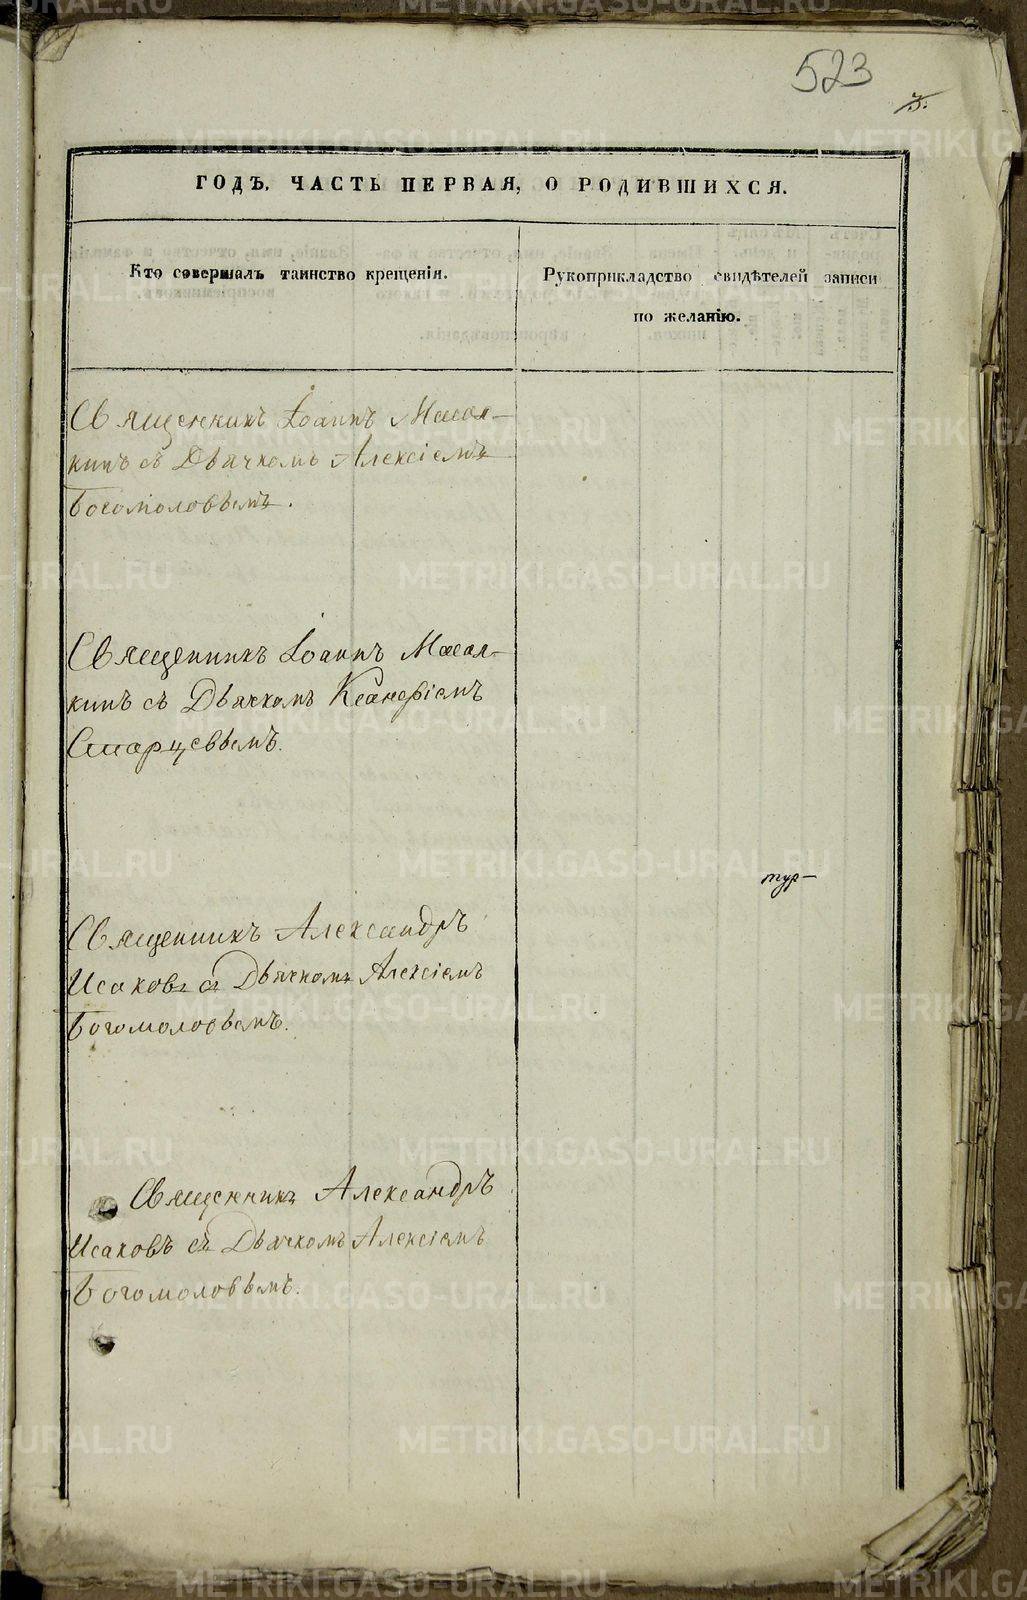 523
3.
ГОДЪ. ЧАСТЬ ПЕРВАЯ, О РОДИВШИХСЯ.
Кто совершалъ таинство крещенія.
Рукоприкладство свидѣтелей записи
по желанію.
Священникъ Іоаннъ Масал-
кинъ съ Дьячкомъ Алексіемъ
Богомоловымъ.
Священникъ Іоаннъ Масал-
кинъ съ Дьячкомъ
Старцевымъ.
тур-
Священникъ Александръ
Исаковъ съ Дьячкомъ Алексіемъ
Богомоловымъ.
Священникъ Александръ
Исаковъ съ Дьячкомъ Алексіемъ
Богомоловымъ.
METRIKI.GASO-URAL.RU